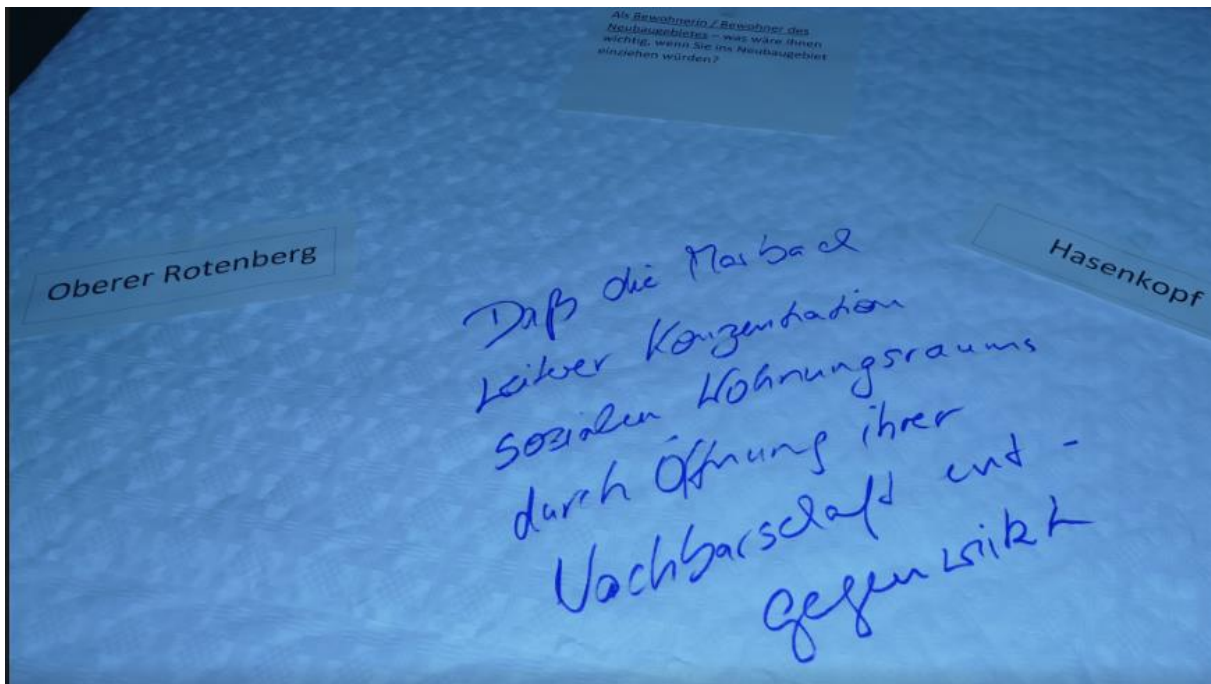 Als Bewohnerin / Bewohner des
Neubaugebietes – was wäre Ihnen
wichtig, wenn Sie ins Neubaugebiet
einziehen würden?
Oberer Rotenberg
Hasenkopf
Daß die Marbach
weiterer Konzentration
sozialen Wohnungsraums
durch Öffnung ihrer
Nachbarschaft ent-
gegenwirkt